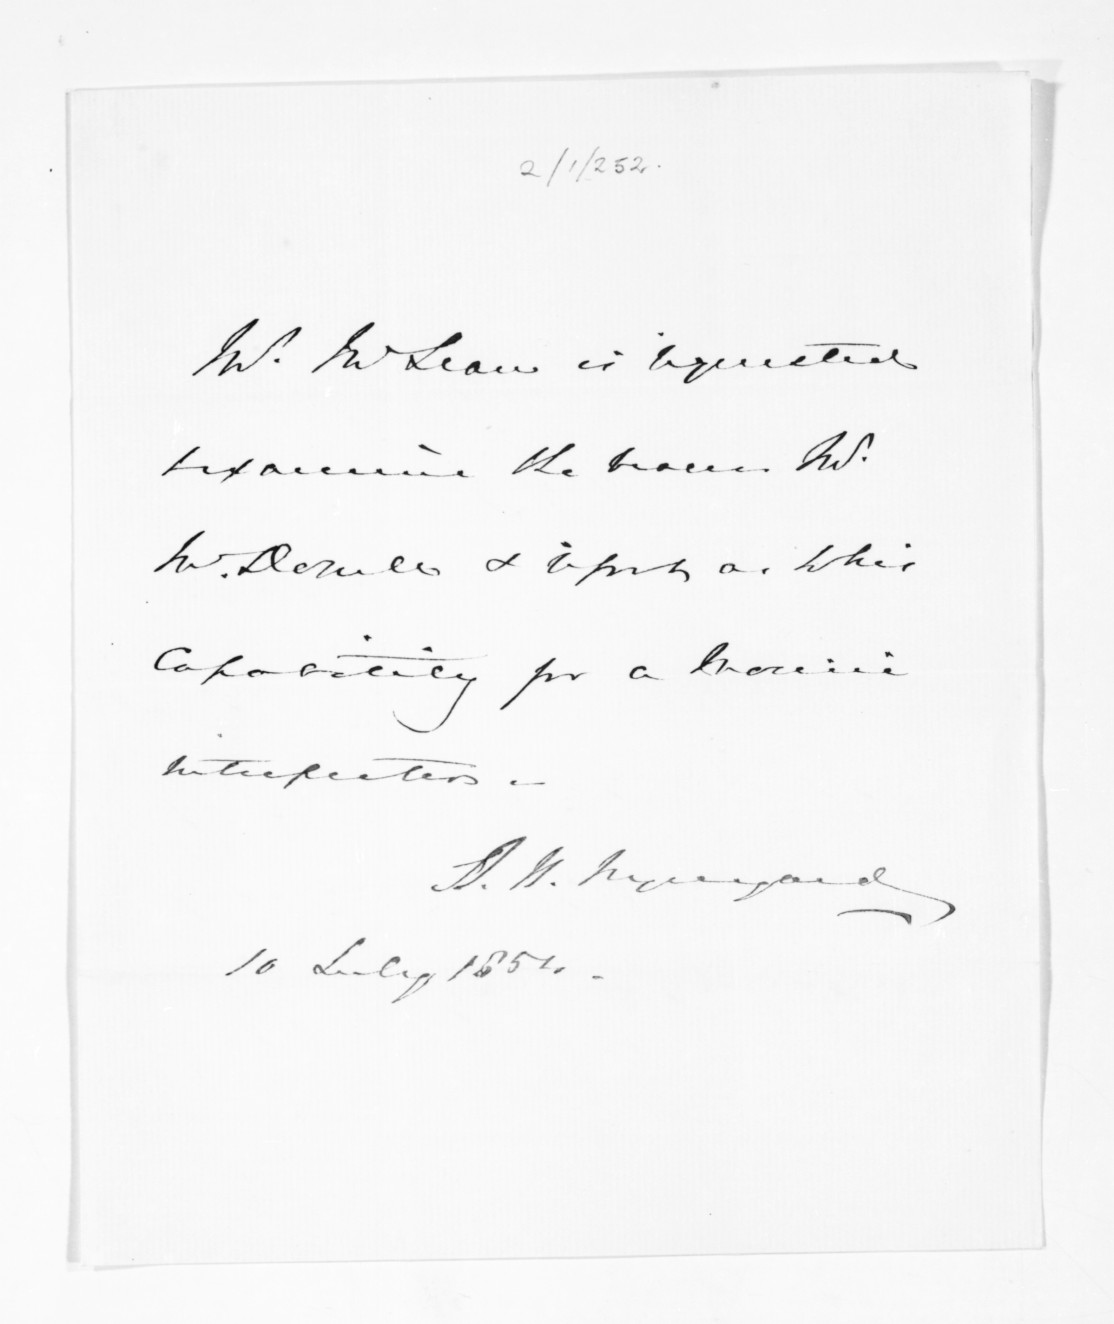 2/1/252.
Mr. McLean is requested
to examine the bearer Mr.
& report as to his
Capability for a
interpreter -
R. H. Wynyard
10 July 1854 -